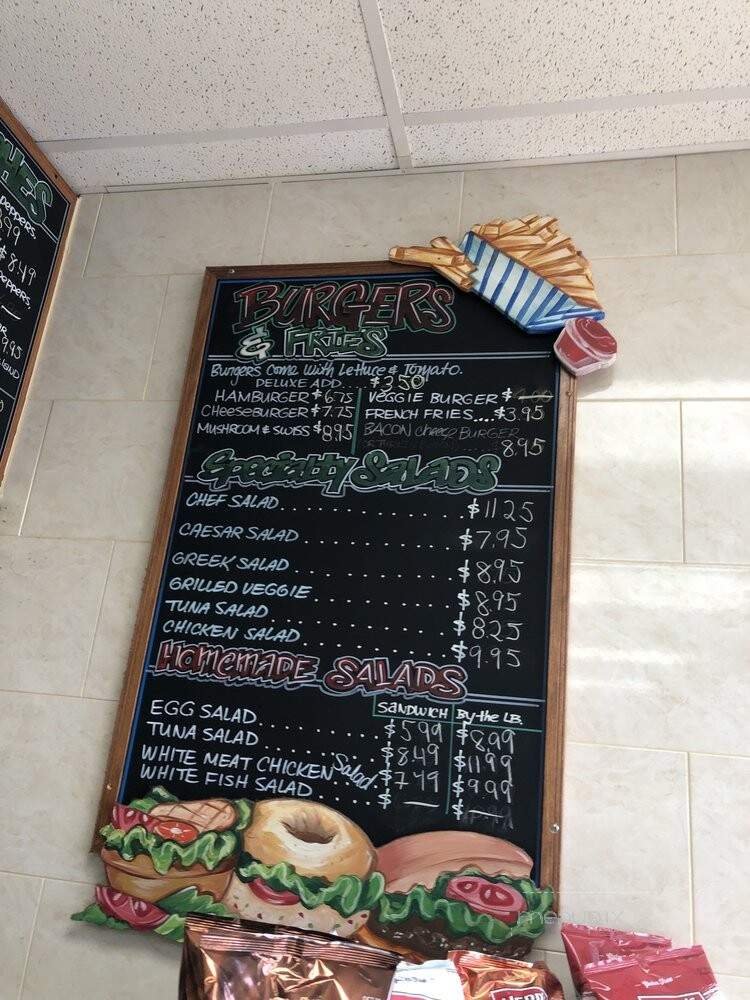 HES
PEPPERS.
$8.49
PEPPERS.
9.95
BURGERS
& FRIES
Burgers come with Lettuce & Tomato.
DELUXE ADD.... $3.50
HAMBURGER $6.75
CHEESEBURGER $7.75
MUSHROOM & SWISS $8.95
VEGGIE BURGER $
FRENCH FRIES.... $3.95
BACON Cheese BURGER
8.95
Specialty SALADS
CHEF SALAD............... $11.25
CAESAR SALAD............ $7.95
GREEK SALAD............. $8.95
GRILLED VEGGIE.......... $8.95
TUNA SALAD.............. $8.25
CHICKEN SALAD........... $9.95
HOMEMADE SALADS
SANDWICH By-the LB.
EGG SALAD.......... $5.99 $8.99
TUNA SALAD......... $8.49 $11.99
WHITE MEAT CHICKEN Salad. $7.49 $9.99
WHITE FISH SALAD..... $ — $ —
HERR